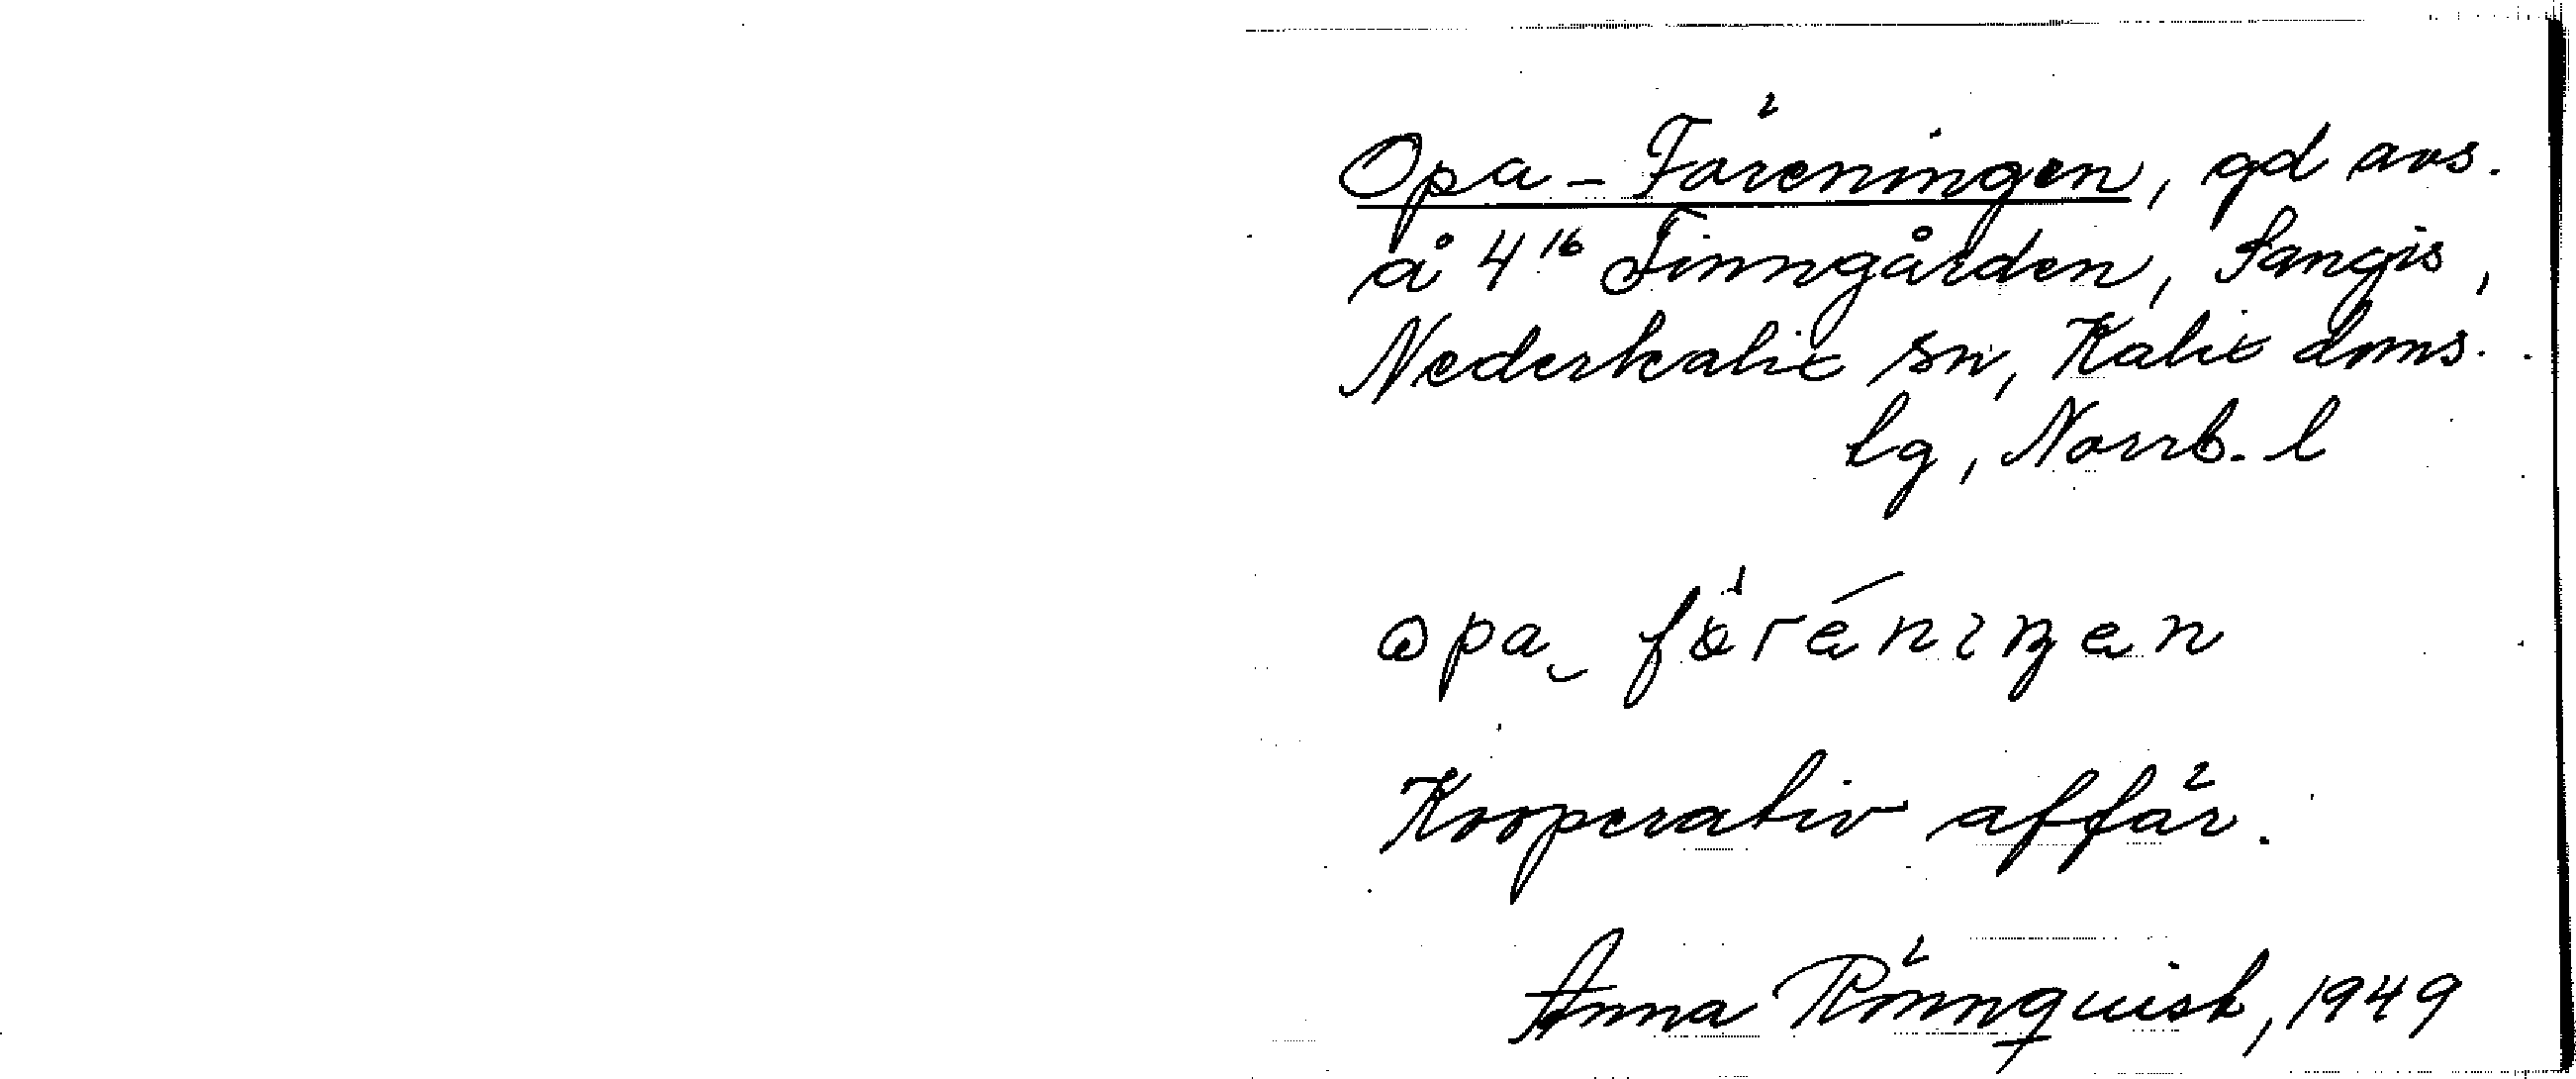 Opa-Föreningen, gd avs.
å 4¹⁶ Finngården, Sangis,
Nederkalix sn, Kalix doms.
lg, Norrb. l
opa föréniŋen
Kooperativ affär.
Anna Rönnquist, 1949